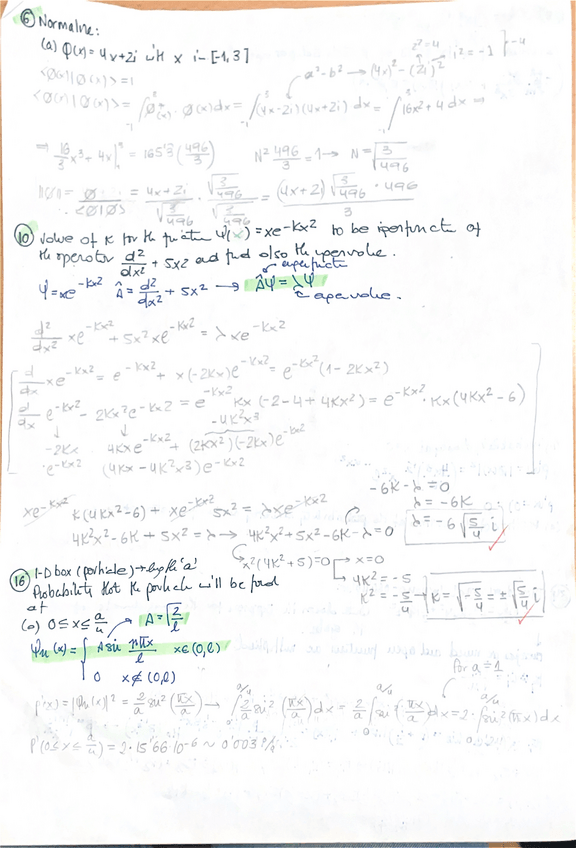 ⑥ Normalize:
(a) φ(x) = 4x+2i with x in [-1,3]
z²=4 i²=-1 } -4
a²-b² → (4x)² - (2i)²
<φ(x)|φ(x)> = 1
<φ(x)|φ(x)> = ∫₋₁³ φ*(x) · φ(x)dx = ∫₋₁³ (4x-2i)(4x+2i) dx = ∫₋₁³ 16x²+4 dx ⇒
⇒ 16/3 x³ + 4x |₋₁³ = 165'3 (496/3) N² 496/3 = 1 → N = √(3/496)
⑩ Value of K for the function Ψ(x) = xe^-Kx² to be eigenfunct of
the operator d²/dx² + 5x² and find also the eigenvalue.
eigenfunct
Ψ = xe^-Kx² Â = d²/dx² + 5x² → ÂΨ = λΨ
eigenvalue.
d²/dx² xe^-Kx² + 5x² xe^-Kx² = λ xe^-Kx²
d/dx xe^-Kx² = e^-Kx² + x(-2Kx)e^-Kx² = e^-Kx² (1-2Kx²)
d/dx e^-Kx² - 2Kx²e^-Kx² = e^-Kx² Kx (-2-4+4Kx²) = e^-Kx² · Kx (4Kx²-6)
-4K²x³
-2Kx 4Kxe^-Kx² + (2Kx²)(-2Kx)e^-Kx²
·e^-Kx² (4Kx - 4K²x³)e^-Kx²
-6K-λ=0
xe^-Kx² K(4Kx²-6) + xe^-Kx² 5x² = λxe^-Kx²
λ = -6K
4K²x² - 6K + 5x² = λ → 4K²x² + 5x² - 6K - λ = 0
λ = -6√(5/4) i
x²(4K²+5) = 0 → x=0
4K² = -5
K² = -5/4 → K = √(-5/4) = ±√(5/4) i
⑯ 1-D box (particle) → length 'a'
Probability that the particle will be found
at
(a) 0≤x≤a/4 A = √(2/l)
Ψn(x) = { A sin nπx/l x∈(0,l)
0 x∉(0,l)
for a=1
p(x) = |Ψn(x)|² = 2/a sin²(πx/a) → ∫₀^a/4 2/a sin²(πx/a)dx = 2/a ∫₀^a/4 sin²(πx/a)dx = 2·∫₀^a/4 sin²(πx)dx
P(0≤x≤a/4) = 2·15'66·10⁻⁶ ~ 0'003 %